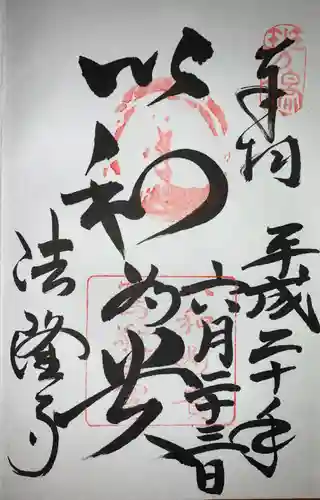 奉拝
平成二十年
六月二十三日
以和為貴
法隆寺